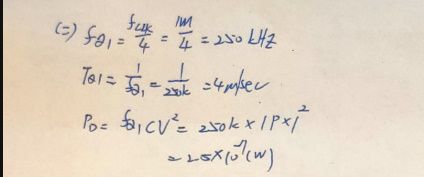 (二) fQ1 = fclk/4 = 1M/4 = 250 kHz
TQ1 = 1/fQ1 = 1/250k = 4 μsec
PD = fQ1CV² = 250k × 1P × 1²
= 2.5×10⁻⁷ (W)